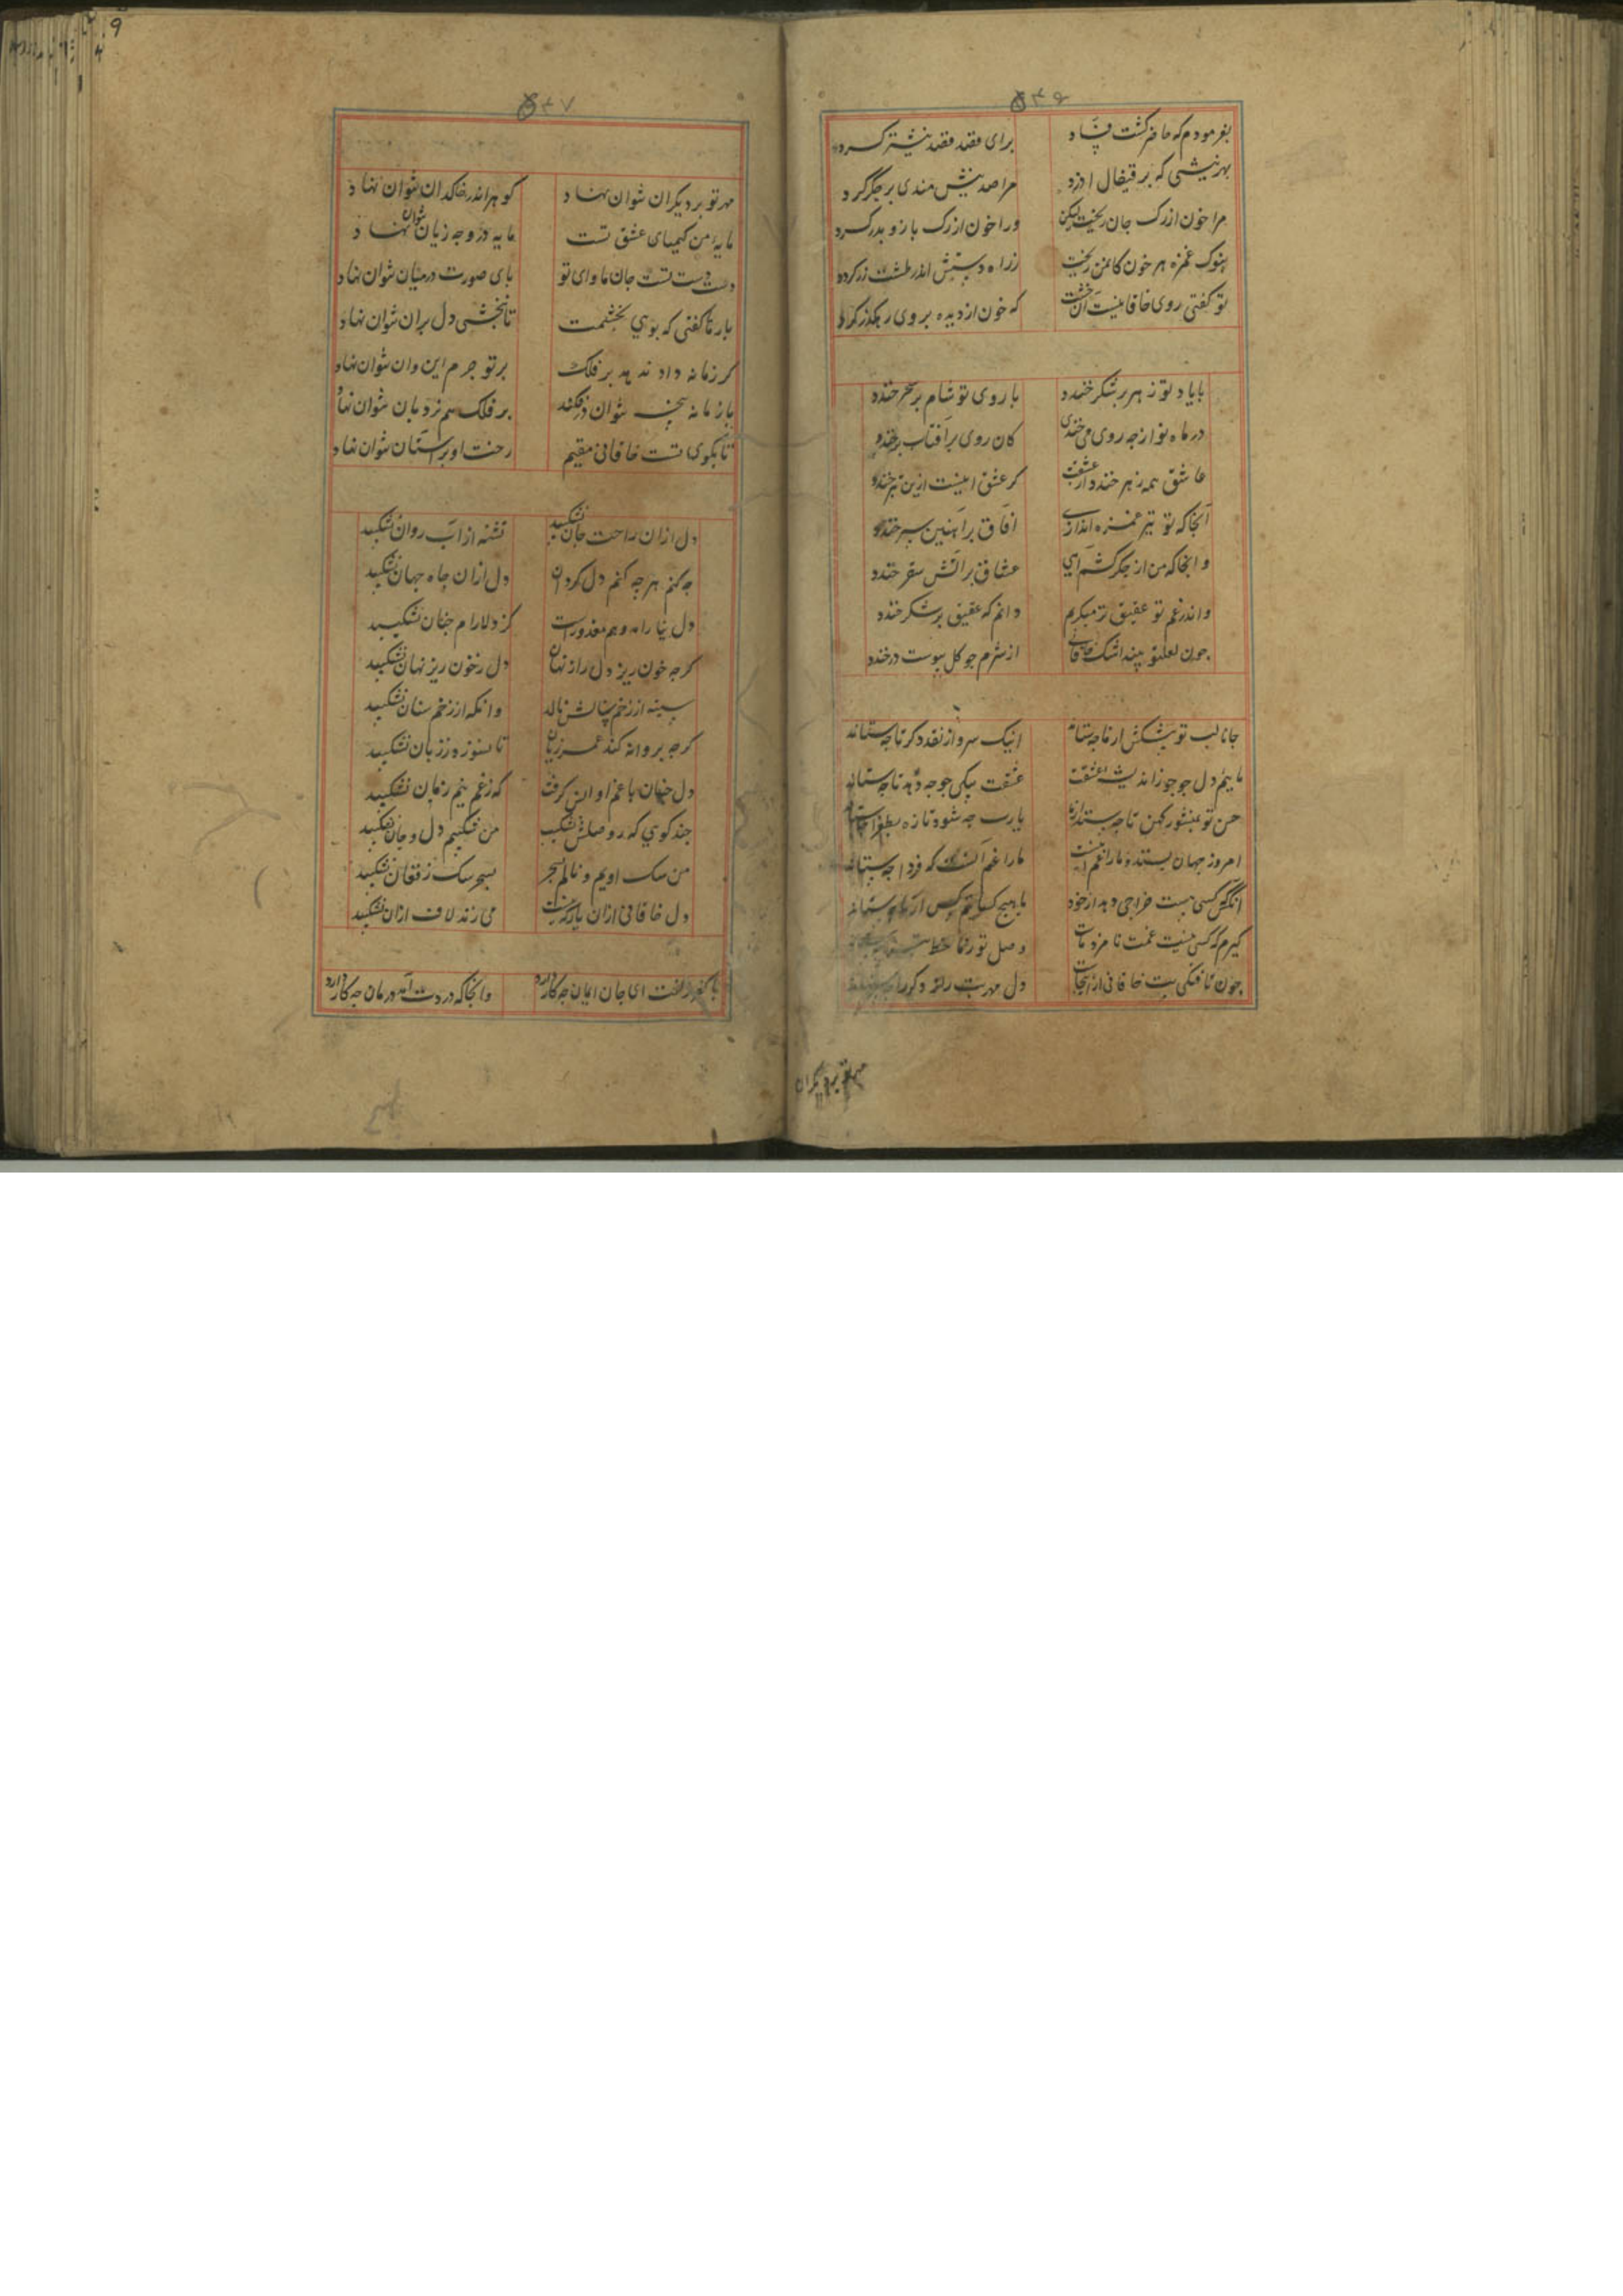 ۵۴۶
بفرمودم که حاضر گشت فصّاد برای فصد فصد نیشتر کرد
بهر نیشی که بر قیفال او زد مرا صد نیش مندی بر جگر کرد
مرا خون از رک جان ریخت لیکن ورا خون از رک بازو بدر کرد
بنوک غمزه هر خون کا ز من ریخت ز راه دستش اندر طشت زر کرد
تو گفتی روی خاقانیست آن طشت که خون از دیده بر وی رهکذر کرد
با یاد تو زهر بر شکر خندد با روی تو شام بر سحر خندد
در ماه نو از چه روی می خندی کان روی بر آفتاب بر خندد
عاشق همه زهر خندد از عشقت کر عشق اینست ازین بتر خندد
آنجا که تو تیر غمزه اندازی آفاق بر آهنین سپر خندد
و آنجا که من از جکر کشم آهی عشاق بر آتش سقر خندد
و اندر غم تو عقیق تر میکریم دانم که عقیق بر شکر خندد
جون لعل تو بیند اشک خاقانی از شرم جو کل بپوست در خندد
جانا لب تو پیشکش از ما جه ستاند اینک سر و از نقد دکر تا جه ستاند
ماییم دل جو جو ز اندیشه عشقت عشقت بیکی جو جه دهد تا جه ستاند
حسن تو بمنشور کهن تا جه ستد از ما یارب جه شود تازه بطغرا جه ستاند
امروز جهان بستد و ما را غم آن نیست ما را غم آنست که فردا جه ستاند
آنکس کسی نیست خراجی دهد از خود با هیچ کسان هیچ کس از ما جه ستاند
کیرم که کسی نیست غمت نامزد ماست وصل تو
جون نافکنی نیست خاقانی ازینجاست دل مهرت
مهر تو بر دیگران
۵۴۷
مهر تو بر دیکران نتوان نهاد کوهر اندر خاکدان نتوان نهاد
مایه من کیمیای عشق تست مایه در وجه زیان نتوان نهاد
دست دست تست جان ماوای تو پای صورت در میان نتوان نهاد
بارها کفتی که بوی بخشمت تا نبخشی دل بران نتوان نهاد
کر زمانه داد ندهد بر فلک بر تو جرم این و آن نتوان نهاد
بازمانه پنجه نتوان در فکند بر فلک هم نردبان نتوان نهاد
تا بکوی تست خاقانی مقیم رخت او بر آستان نتوان نهاد
دل ازان راحت جان نشکیبد تشنه از آب روان نشکیبد
جه کنم هر جه کنم دل کرد آن دل ازان جاه جهان نشکیبد
دل نیارامد و هم معذورست کز دلارام جنان نشکیبد
کرجه خون ریزد دل راز نهان دل ز خون ریز نهان نشکیبد
سینه از زخم سنانش نالد وانکه از زخم سنان نشکیبد
کرجه بروانه کند عمر زیان تا نسوزد ز زیان نشکیبد
دل جنان با غم او انس کرفت که ز غم نیم زمان نشکیبد
جند کویی که ز وصلش بشکیب من شکیبم دل و جان نشکیبد
من سک اویم و نالم بسحر بسحر سک ز فغان نشکیبد
دل خاقانی ازان یار کزیست می زند لاف ازان نشکیبد
با کفر زلفت ای جان ایمان جه کار دارد وانجا که دردت آمد درمان جه کار دارد